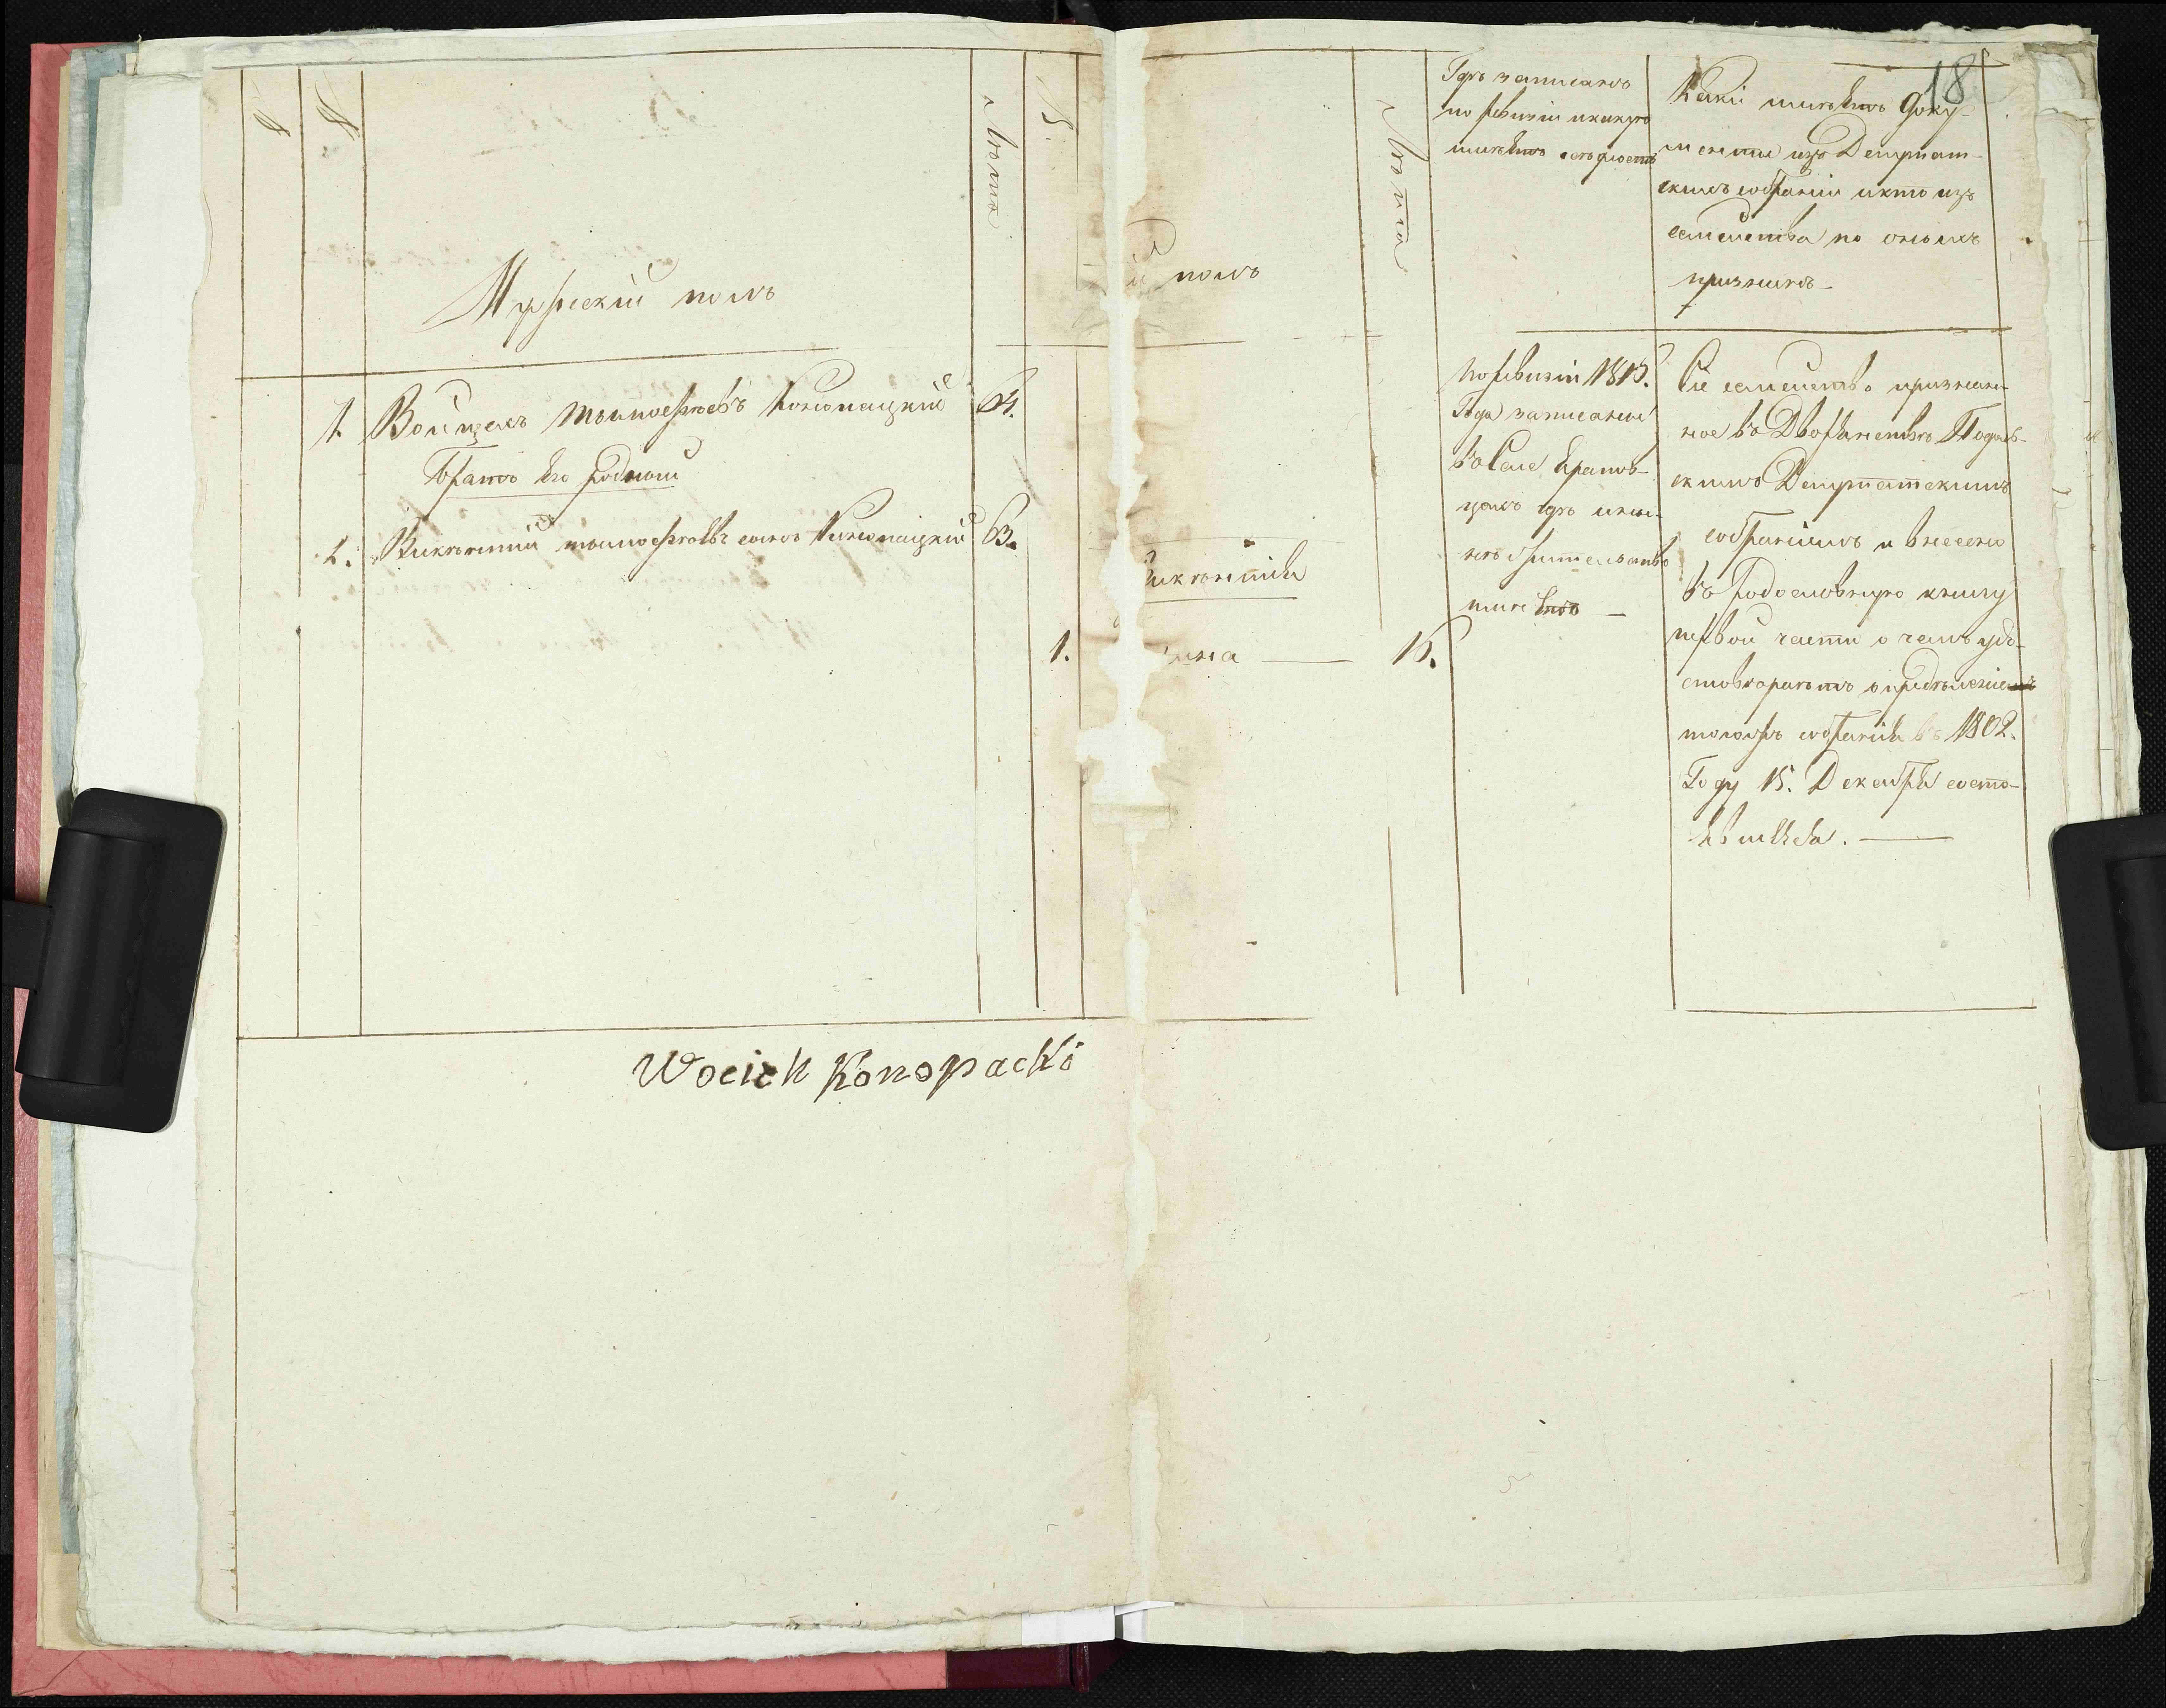 18
№
№
Лѣта
№
Мужеский полъ
й полъ
Лѣта
Где записанъ
по ревизіи и какую
имѣетъ осѣдлость
Какіи имѣетъ доку-
менты изъ Депутат-
скихъ собраніи и кто изъ
семейства по онымъ
признанъ
1. Войцехъ Тымофѣевъ Конопацкій 64.
Братъ его родной
2. Викентий Тымофѣевъ сынъ Конопацкий 63.
Викентия
1. 15.
По ревизіи 1815.
Года записаны
въ Селе
где и ны-
не жительство
имѣетъ
Сіе семейство признан-
ное въ Дворянствѣ Подоль-
скимъ Депутатскимъ
собраніемъ и внесено
въ Родословную книгу
первой части о чемъ удо-
стоверяетъ определение
тогожъ собранія въ 1802.
Году 15. Декабря состо-
явшееся.
Wocieh Konopacki